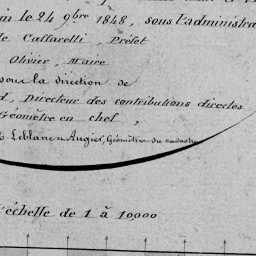 le 24 9bre 1848, sous l'administra
Caffarelli, Préfet
Olivier, Maire
sous la direction de
Directeur des contributions directes
Géomètre en chef,
Leblanc Augier, Géomètre du cadastre
échelle de 1 à 10,000